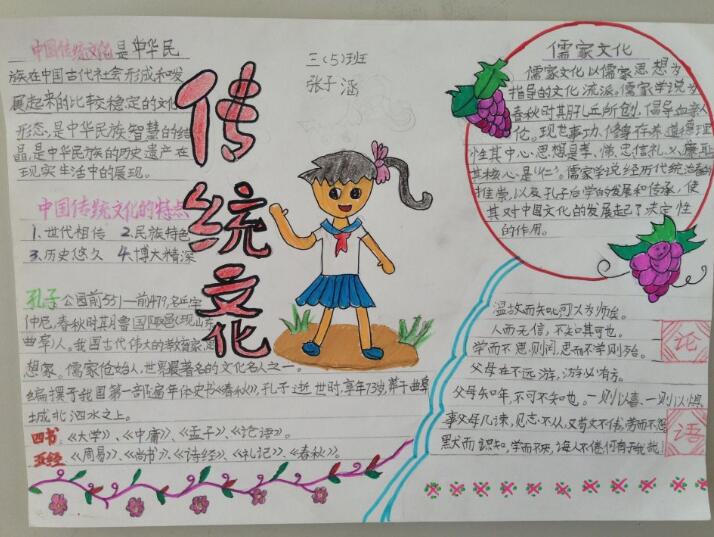 中国传统文化是中华民
族在中国古代社会形成和发
展起来的比较稳定的文化
形态,是中华民族智慧的结
晶,是中华民族的历史遗产在
现实生活中的展现。
中国传统文化的特点
1.世代相传 2.民族特色
3.历史悠久 4.博大精深
孔子 公园前551一前479,名丘字
仲尼,春秋时期鲁国陬邑(现山东
曲阜)人。我国古代伟大的教育家,思
想家。儒家创始人,世界最著名的文化名人之一。
编撰了我国第一部编年体史书《春秋》,孔子逝世时,享年73岁,葬于曲阜
城北泗水之上。
四书《大学》、《中庸》、《孟子》、《论语》。
五经《周易》、《尚书》、《诗经》、《礼记》、《春秋》。
传统文化
三(5)班
张子涵
儒家文化
儒家文化以儒家思想为
指导的文化流派,儒家学说为
春秋时期孔丘所创,倡导血亲人
伦。现世事功、修身存养、道德理
性其中心思想是孝、悌、忠、信、礼、义、廉、耻
其核心是“仁”。儒家学说经历代统治者的
推崇,以及孔子后学的发展和传承,使
其对中国文化的发展起了决定性
的作用。
温故而知新可以为师矣。
人而无信,不知其可也。
学而不思则罔,思而不学则殆。
父母在不远游,游必有方。
父母知年,不可不知也。一则以喜,一则以惧。
事父母几谏,见志不从,又敬不违,劳而不怨
默而识知,学而不厌,诲人不倦,何有于我哉!
论
语